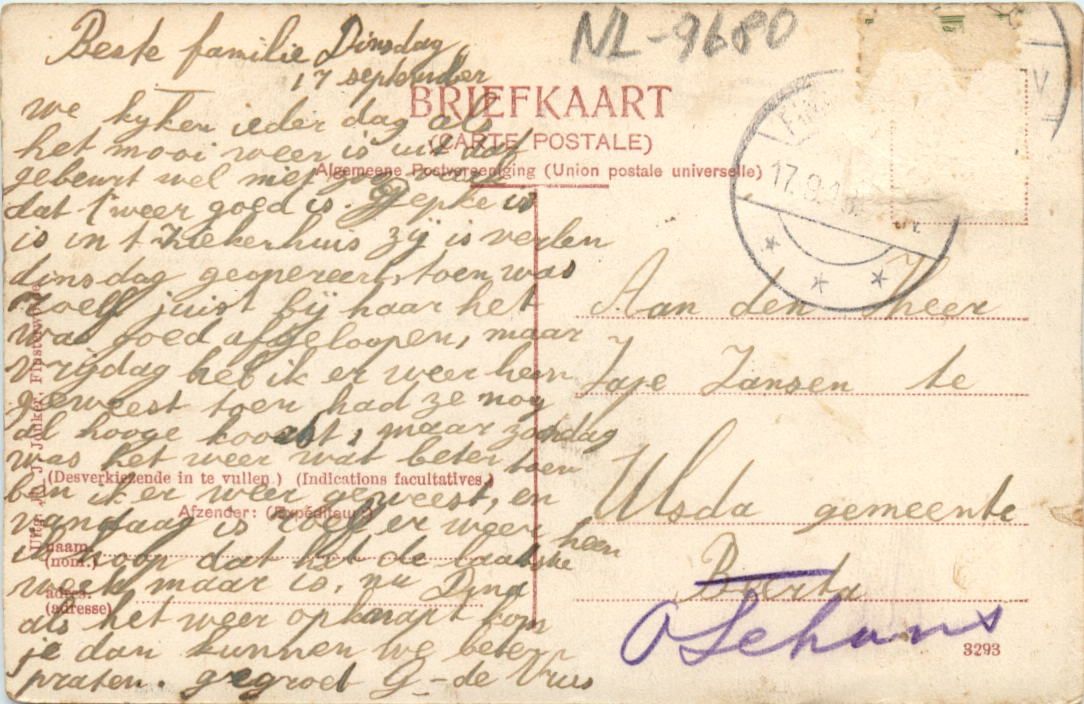 Beste familie Dinsdag
17 september
NL-9680
BRIEFKAART
(CARTE POSTALE)
Algemeene Postvereeniging (Union postale universelle)
we kyken ieder dag als
het mooi weer is uit dat
gebeurt wel niet
dat t weer goed is. Gepke is
is in t Ziekerhuis zij is verlen
dinsdag geopereert, toen was
Roelf juist bij haar het
was goed afgeloopen, maar
vrijdag heb ik er weer heen
geweest toen had ze nog
al hooge koorst, maar zondag
was het weer wat beter toen
ben ik er weer geweest, en
vandaag is Roelf er weer heen
ik hoop dat het de laatste
week maar is, nu Dina
als het weer opknapt kom
je dan kunnen we beter
praten. gegroet G-de Vries
17.9.18
Aan den Heer
Jape Jansen te
Ulsda gemeente
Beerta
O Schans
(Desverkiezende in te vullen.) (Indications facultatives.)
Afzender: (Expéditeur:)
naam.
(nom.)
adres.
(adresse)
Jonker, Finsterwolde
3293